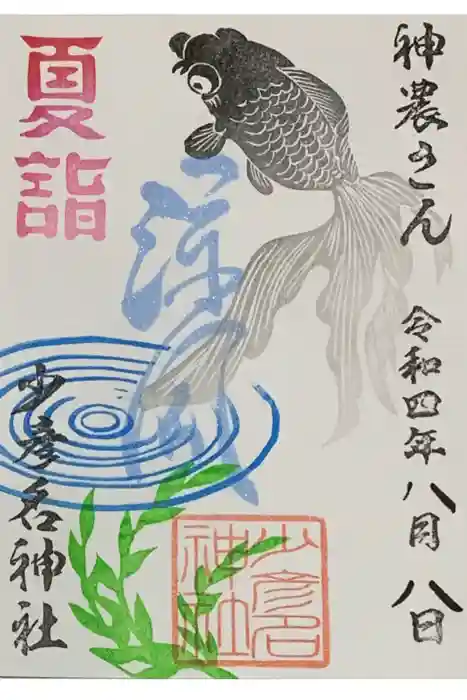 神農さん 令和四年八月八日
夏詣
涼風
少彦名神社
少彦名
神社